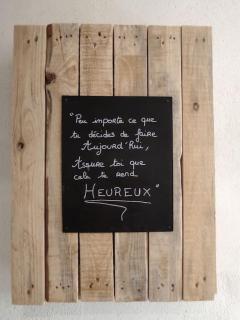 "Peu importe ce que
tu décides de faire
Aujourd'hui,
Assure toi que
cela te rend
HEUREUX"